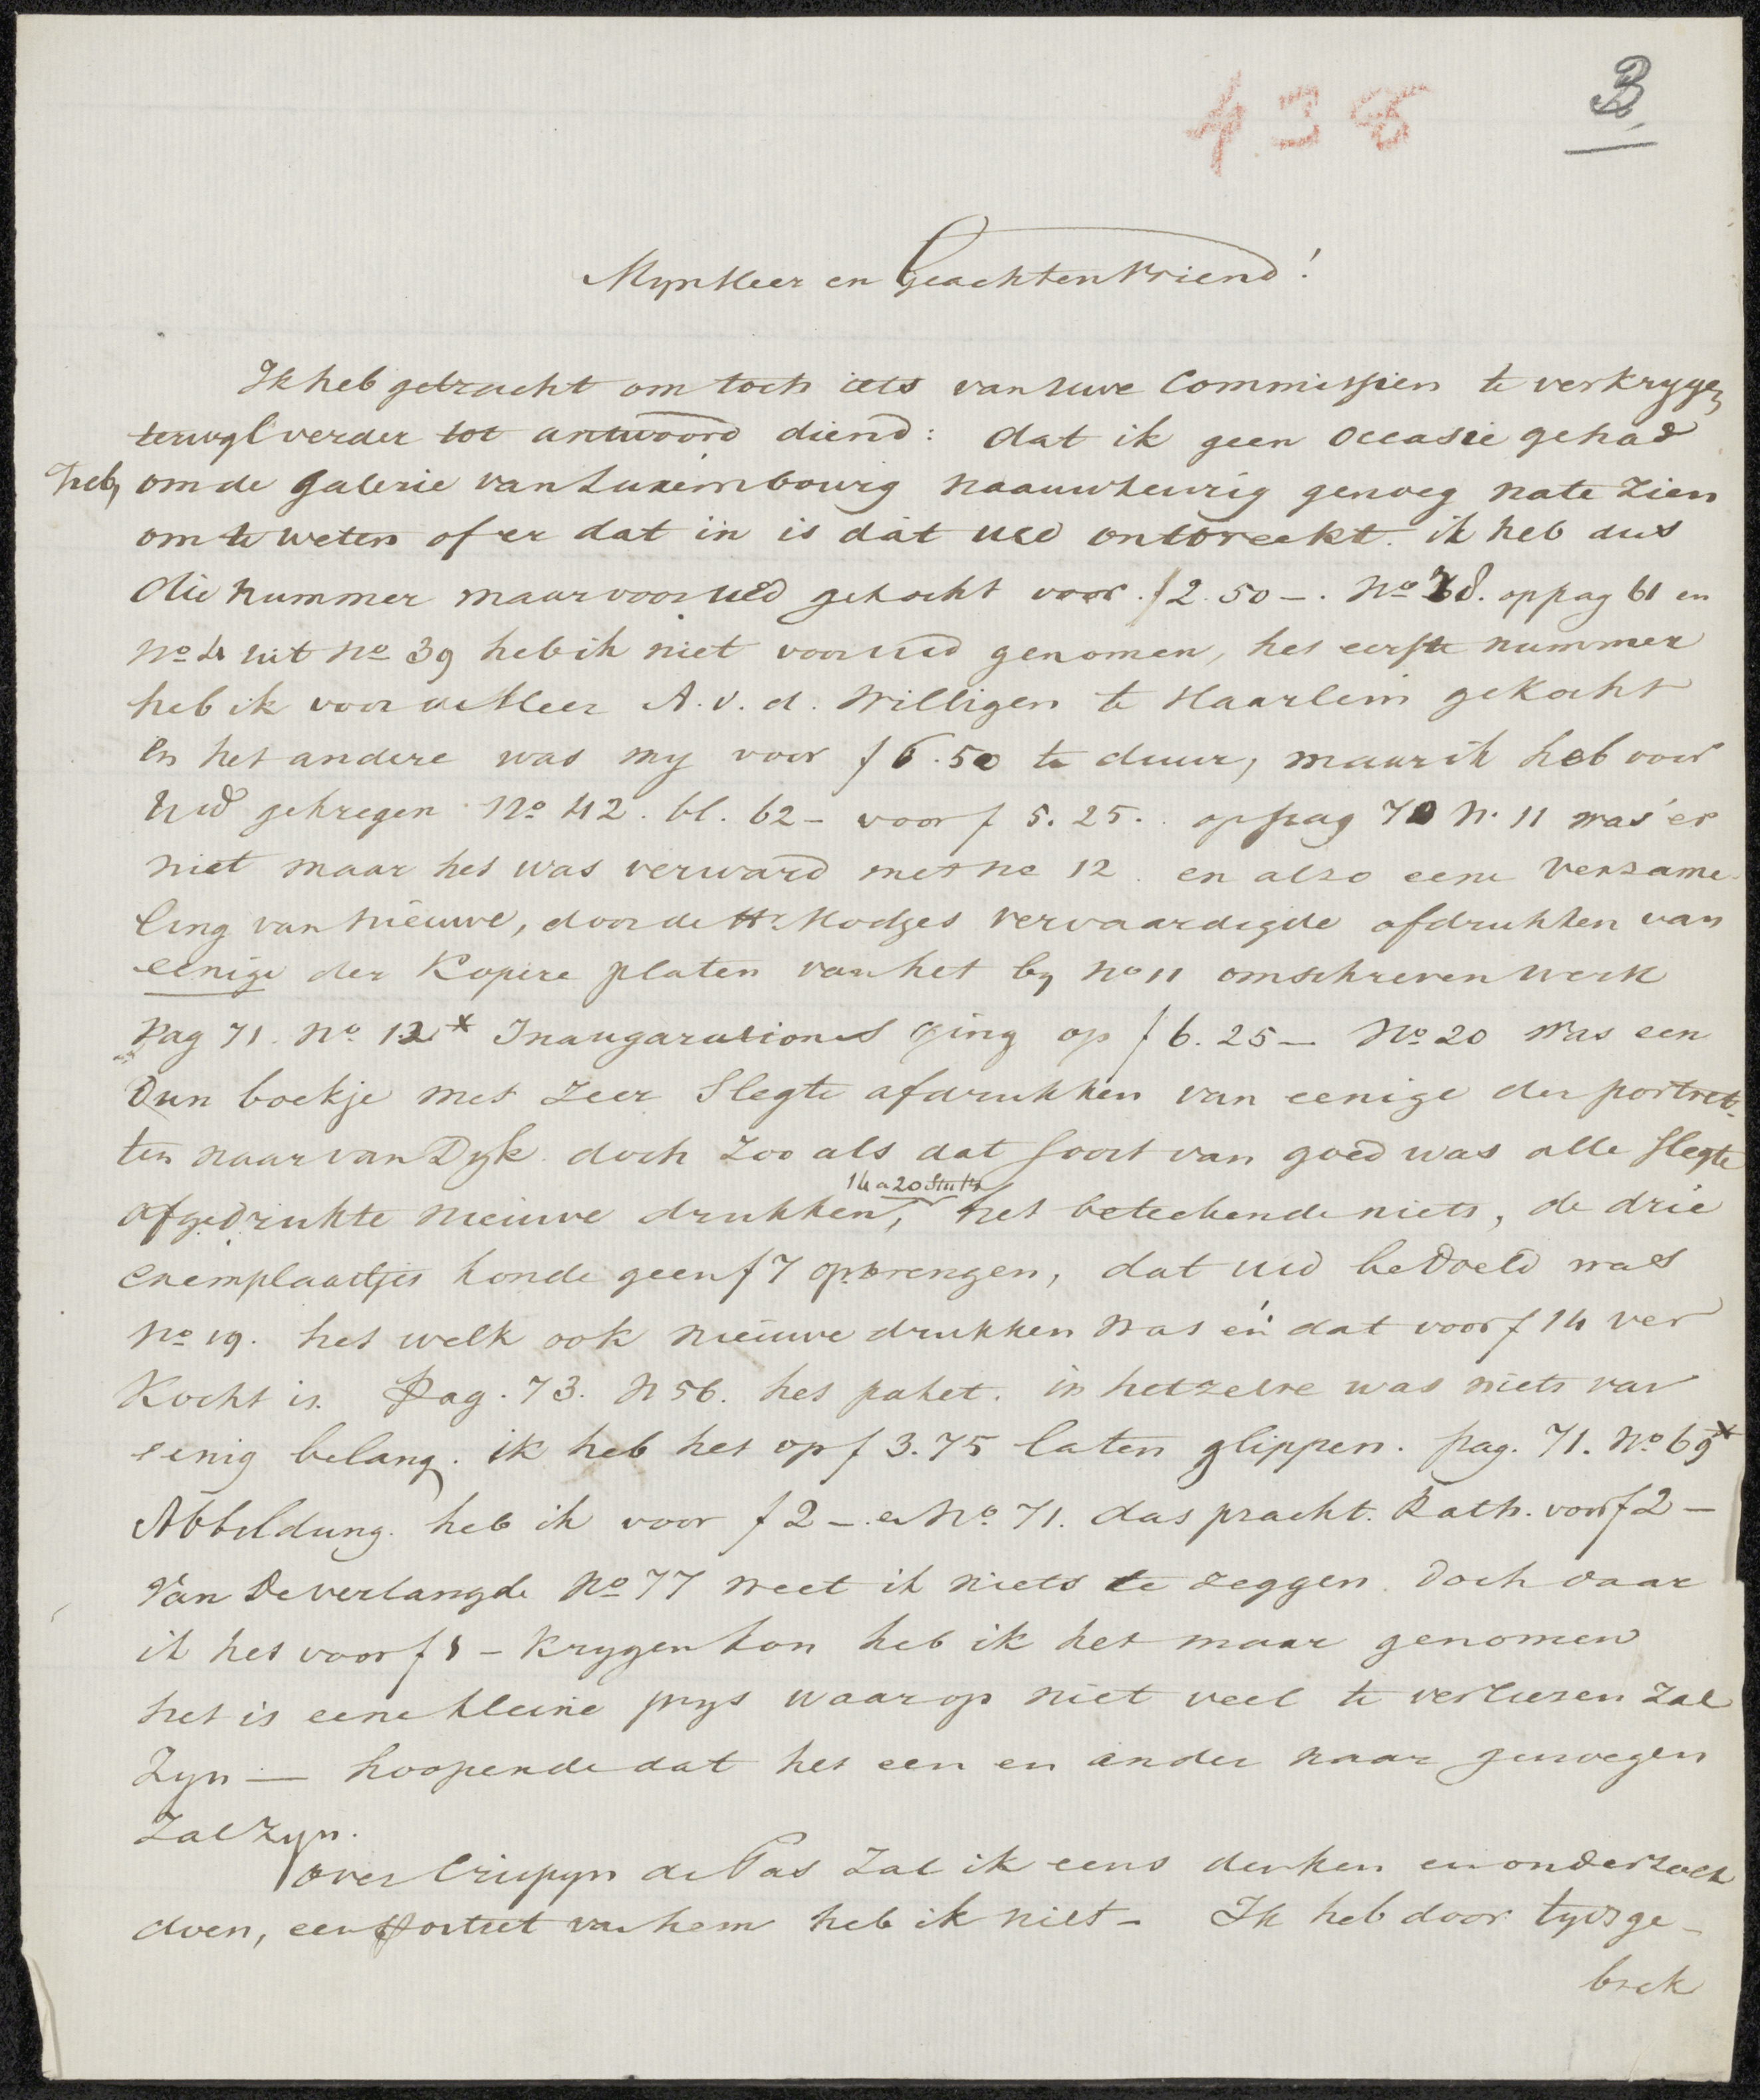 438
B
Myn Heer en Geachten Vriend!
Ik heb getracht om toch iets van Uwe Commissien te verkrygen
terwyl verder tot antwoord diend: dat ik geen occasie gehad
heb, om de Galerie van Luxembourg naauwkeurig genoeg na te zien
om te weten of er dat in is dat UEd ontbreekt. ik heb dus
die nummer maar voor UEd gekocht voor f 2.50 —. No 38. op pag 61 en
No 4 uit No 39 heb ik niet voor UEd genomen, het eerste nummer
heb ik voor de Heer A. v. d. Willigen te Haarlem gekocht
en het andere was my voor f 6.50 te duur, maar ik heb voor
UEd gekregen No 42. bl. 62 – voor f 5.25. op pag 70 N. 11 was er
niet maar het was verward met no 12. en alzo eene verzame-
ling van nieuwe, door de Hr. Hodges vervaardigde afdrukken van
eenige der Kopere platen van het by No 11 omschreven werk
Pag 71. No. 12* Inaugurationes ging op f 6.25 — No 20 was een
Dun boekje met zeer slegte afdrukken van eenige der portret-
ten naar van Dyk doch zoo als dat soort van goed was alle slegte
14 a 20 stuks
afgedrukte nieuwe drukken, het beteekende niets, de drie
exemplaartjes konde geen f 7 opbrengen, dat UEd bedoeld was
No 19. het welk ook nieuwe drukken was en dat voor f 14 ver
kocht is. Pag. 73. N 56. het paket. in hetzelve was niets van
eenig belang. ik heb het op f 3.75 laten glippen. pag. 71. No 69*
Abbildung. heb ik voor f 2 –. e No. 71. das pracht. Rath. voor f 2 —
Van De verlangde No 77 weet ik niets te zeggen. Doch daar
ik het voor f 1 – krygen kon heb ik het maar genomen
het is eene kleine prys waar op niet veel te verliesen zal
Zyn — hoopende dat het een en ander naar genoegen
Zal zyn.
over Crispyn de Pas zal ik eens denken en onderzoek
doen, een Portret van hem heb ik niet – Ik heb door tyds ge-
brek